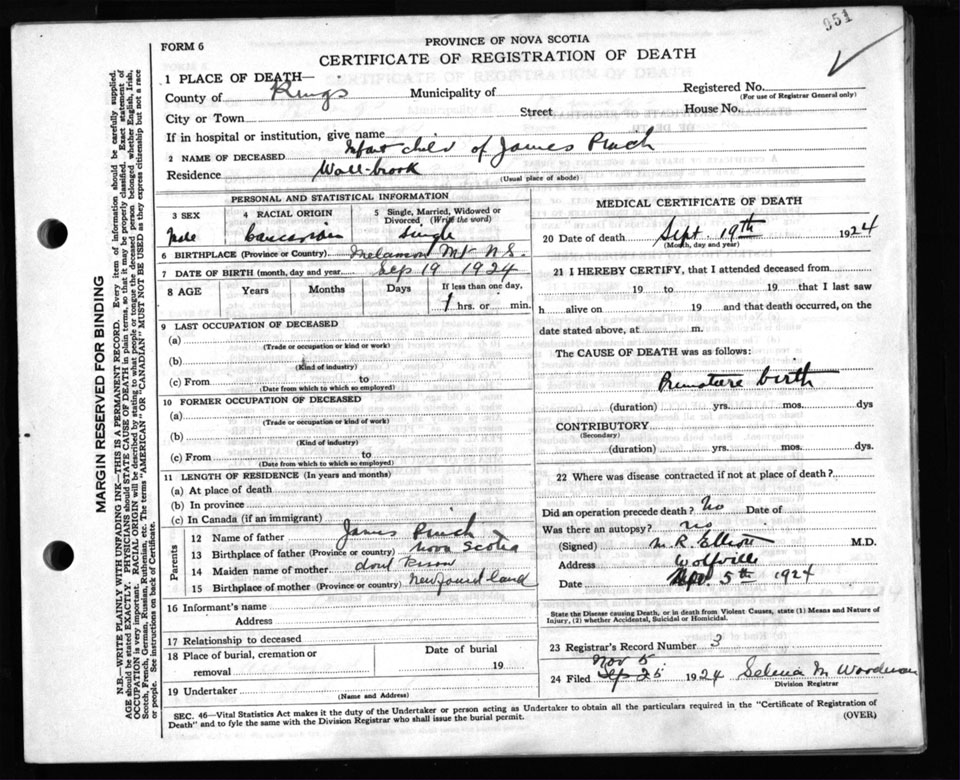 951
FORM 6
PROVINCE OF NOVA SCOTIA
CERTIFICATE OF REGISTRATION OF DEATH
1 PLACE OF DEATH—
County of Kings Municipality of Registered No.
(For use of Registrar General only)
City or Town Street House No.
If in hospital or institution, give name
2 NAME OF DECEASED Infant child of James Pinch
Residence Wall-brook
(Usual place of abode)
PERSONAL AND STATISTICAL INFORMATION
3 SEX 4 RACIAL ORIGIN 5 Single, Married, Widowed or Divorced (Write the word)
Male single
6 BIRTHPLACE (Province or Country) Melanson Mt N.S.
7 DATE OF BIRTH (month, day and year) Sep 19 1924
8 AGE Years Months Days If less than one day,
1 hrs. or min.
9 LAST OCCUPATION OF DECEASED
(a)
(Trade or occupation or kind or work)
(b)
(Kind of industry)
(c) From to
(Date from which to which so employed)
10 FORMER OCCUPATION OF DECEASED
(a)
(b)
(Kind of industry)
(c) From to
(Date from which to which so employed)
11 LENGTH OF RESIDENCE (In years and months)
(a) At place of death
(b) In province
(c) In Canada (if an immigrant)
Parents
12 Name of father James Pinch
13 Birthplace of father (Province or country) Nova Scotia
14 Maiden name of mother dont
15 Birthplace of mother (Province or country) newfoundland
16 Informant's name
Address
17 Relationship to deceased
18 Place of burial, cremation or removal Date of burial
19
19 Undertaker
(Name and Address)
MEDICAL CERTIFICATE OF DEATH
20 Date of death Sept. 19th 1924
(Month, day and year)
21 I HEREBY CERTIFY, that I attended deceased from
19 to 19 that I last saw
h alive on 19 and that death occurred, on the
date stated above, at m.
The CAUSE OF DEATH was as follows:
Premature birth
(duration) yrs. mos. dys
CONTRIBUTORY
(Secondary)
(duration) yrs. mos. dys.
22 Where was disease contracted if not at place of death?
Did an operation precede death? No Date of
Was there an autopsy? no
(Signed) M. R. Elliott M.D.
Address Wolfville
Date 5th 1924
State the Disease causing Death, or in death from Violent Causes, state (1) Means and Nature of
Injury, (2) whether Accidental, Suicidal or Homicidal.
23 Registrar's Record Number 3
Nov 5
24 Filed Sep 25 1924 Selina M Woodman
Division Registrar
SEC. 46—Vital Statistics Act makes it the duty of the Undertaker or person acting as Undertaker to obtain all the particulars required in the "Certificate of Registration of
Death" and to fyle the same with the Division Registrar who shall issue the burial permit. (OVER)
MARGIN RESERVED FOR BINDING
N.B.—WRITE PLAINLY WITH UNFADING INK—THIS IS A PERMANENT RECORD. Every item of information should be carefully supplied.
AGE should be stated EXACTLY. PHYSICIANS should STATE CAUSE OF DEATH in plain terms, so that it may be properly classified. Exact statement of
OCCUPATION is very important. RACIAL ORIGIN will be described by stating to what people or tongue the deceased person belonged whether English, Irish,
Scotch, French, German, Russian, Ruthenian, etc. The terms "AMERICAN" OR "CANADIAN" MUST NOT BE USED as they express citizenship but not a race
or people. See instructions on back of Certificate.